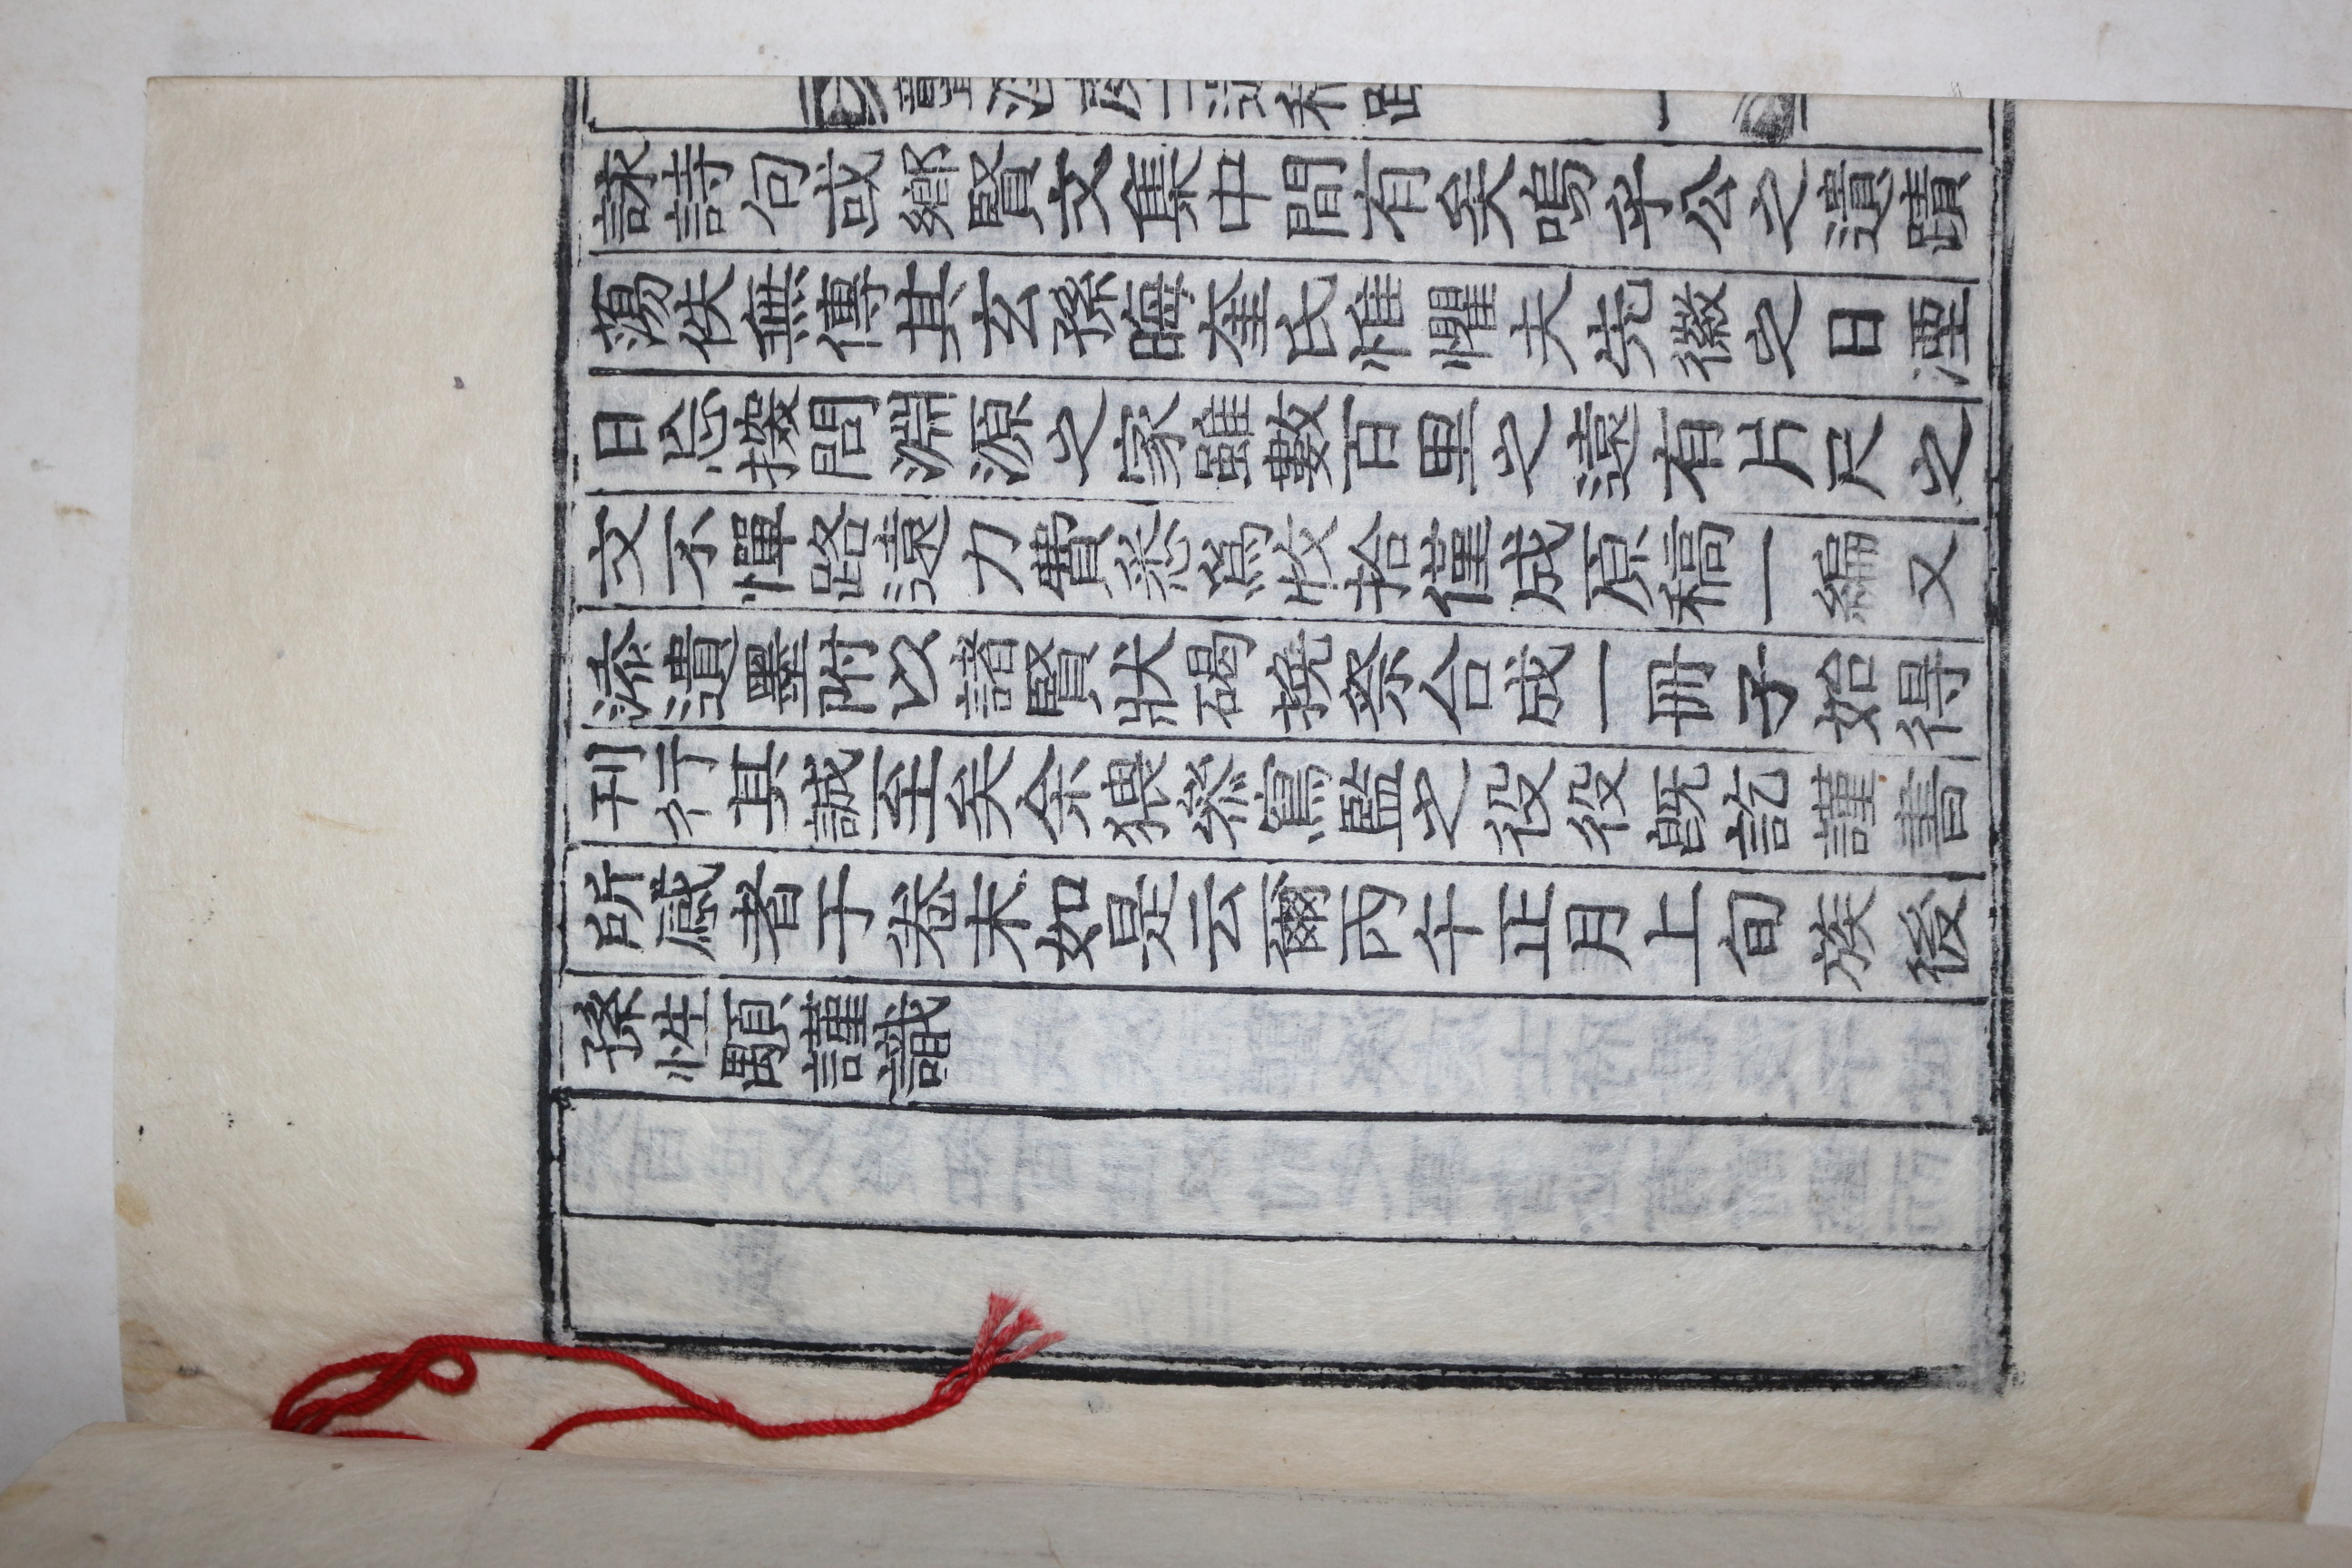 詠詩句或鄕賢文集中間有矣嗚乎公之遺蹟
蕩佚無傳其玄孫晦奎氏惟懼夫先徽之日湮
日忘搜問淵源之家雖數百里之遠有片尺之
文不憚路遠力費悉爲收拾僅成原稿一編又
添遺墨附以諸賢狀碣挽祭合成一冊子始得
刊行其誠至矣余猥參寫監之役役旣訖謹書
所感者于卷末如是云爾丙午正月上旬族後
孫性顒謹識